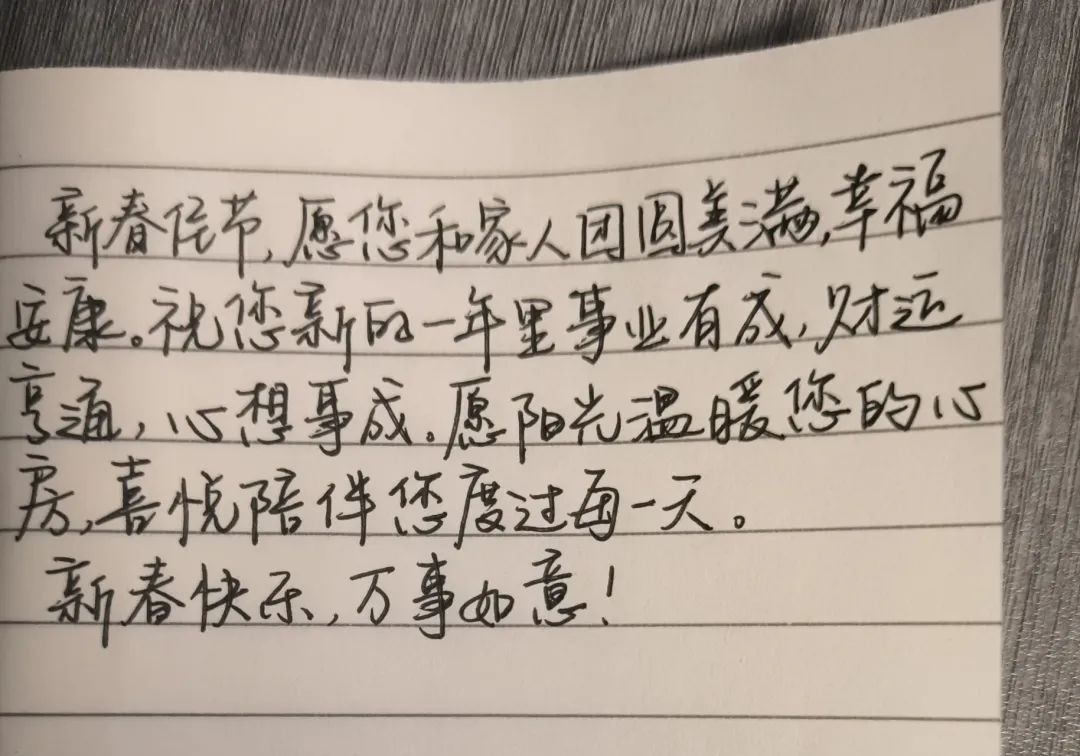 新春佳节,愿您和家人团圆美满,幸福
安康。祝您新的一年里事业有成,财运
亨通,心想事成。愿阳光温暖您的心
房,喜悦陪伴您度过每一天。
新春快乐,万事如意!